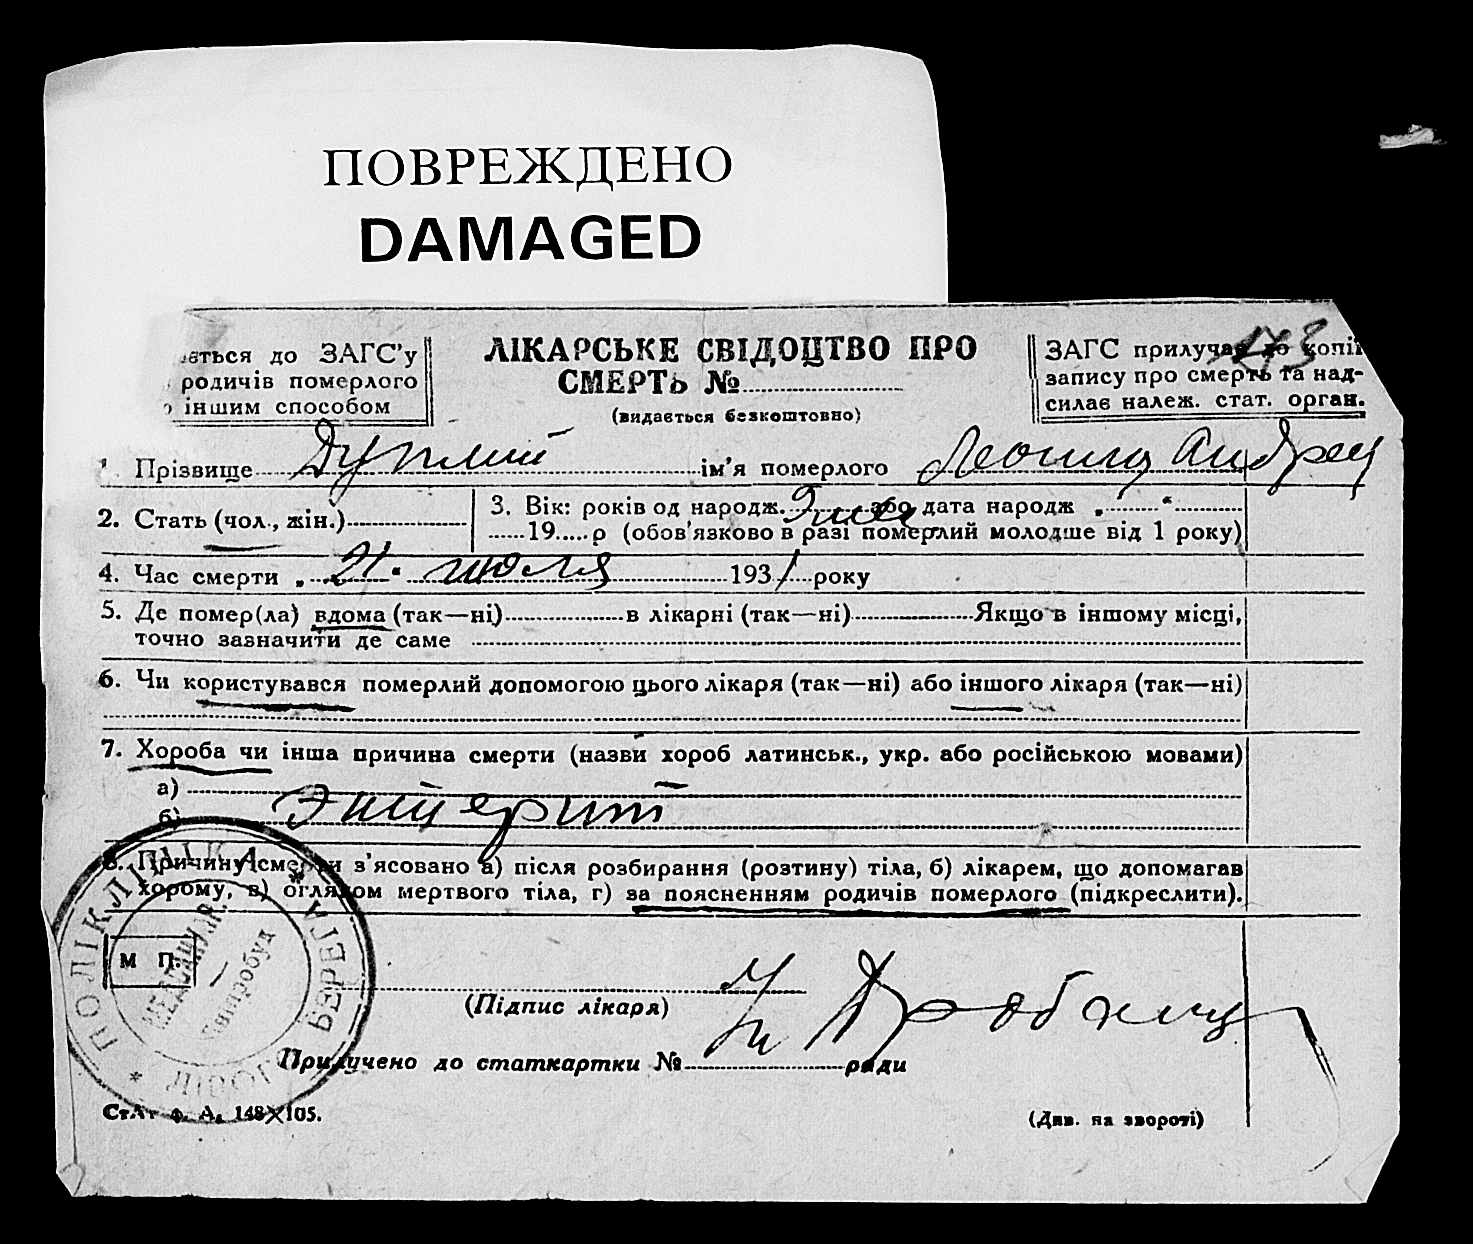 ПОВРЕЖДЕНО
DAMAGED
ається до ЗАГС'у
родичів померлого
іншим способом
ЛІКАРСЬКЕ СВІДОЦТВО ПРО
СМЕРТЬ №
(видається безкоштовно)
ЗАГС прилучає до копії
запису про смерть та над-
силає належ. стат. орган.
143
Прізвище ім'я померлого Леонид Андреев
2. Стать (чол., жін.)
3. Вік: років од народж. або дата народж „ “
19 р (обов'язково в разі померлий молодше від 1 року)
4. Час смерти „21“ июля 1931 року
5. Де помер(ла) вдома (так—ні) в лікарні (так—ні) Якщо в іншому місці,
точно зазначити де саме
6. Чи користувався померлий допомогою цього лікаря (так—ні) або іншого лікаря (так—ні)
7. Хороба чи інша причина смерти (назви хороб латинськ., укр. або російською мовами)
а)
б) Энтерит
8. Причину смерти з'ясовано а) після розбирання (розтину) тіла, б) лікарем, що допомагав
хорому, в) оглядом мертвого тіла, г) за поясненням родичів померлого (підкреслити).
ПОЛІКЛІНІКА
М П.
(Підпис лікаря)
Прилучено до статкартки № ради
СтАт ф. А. 148×105.
(Див. на звороті)